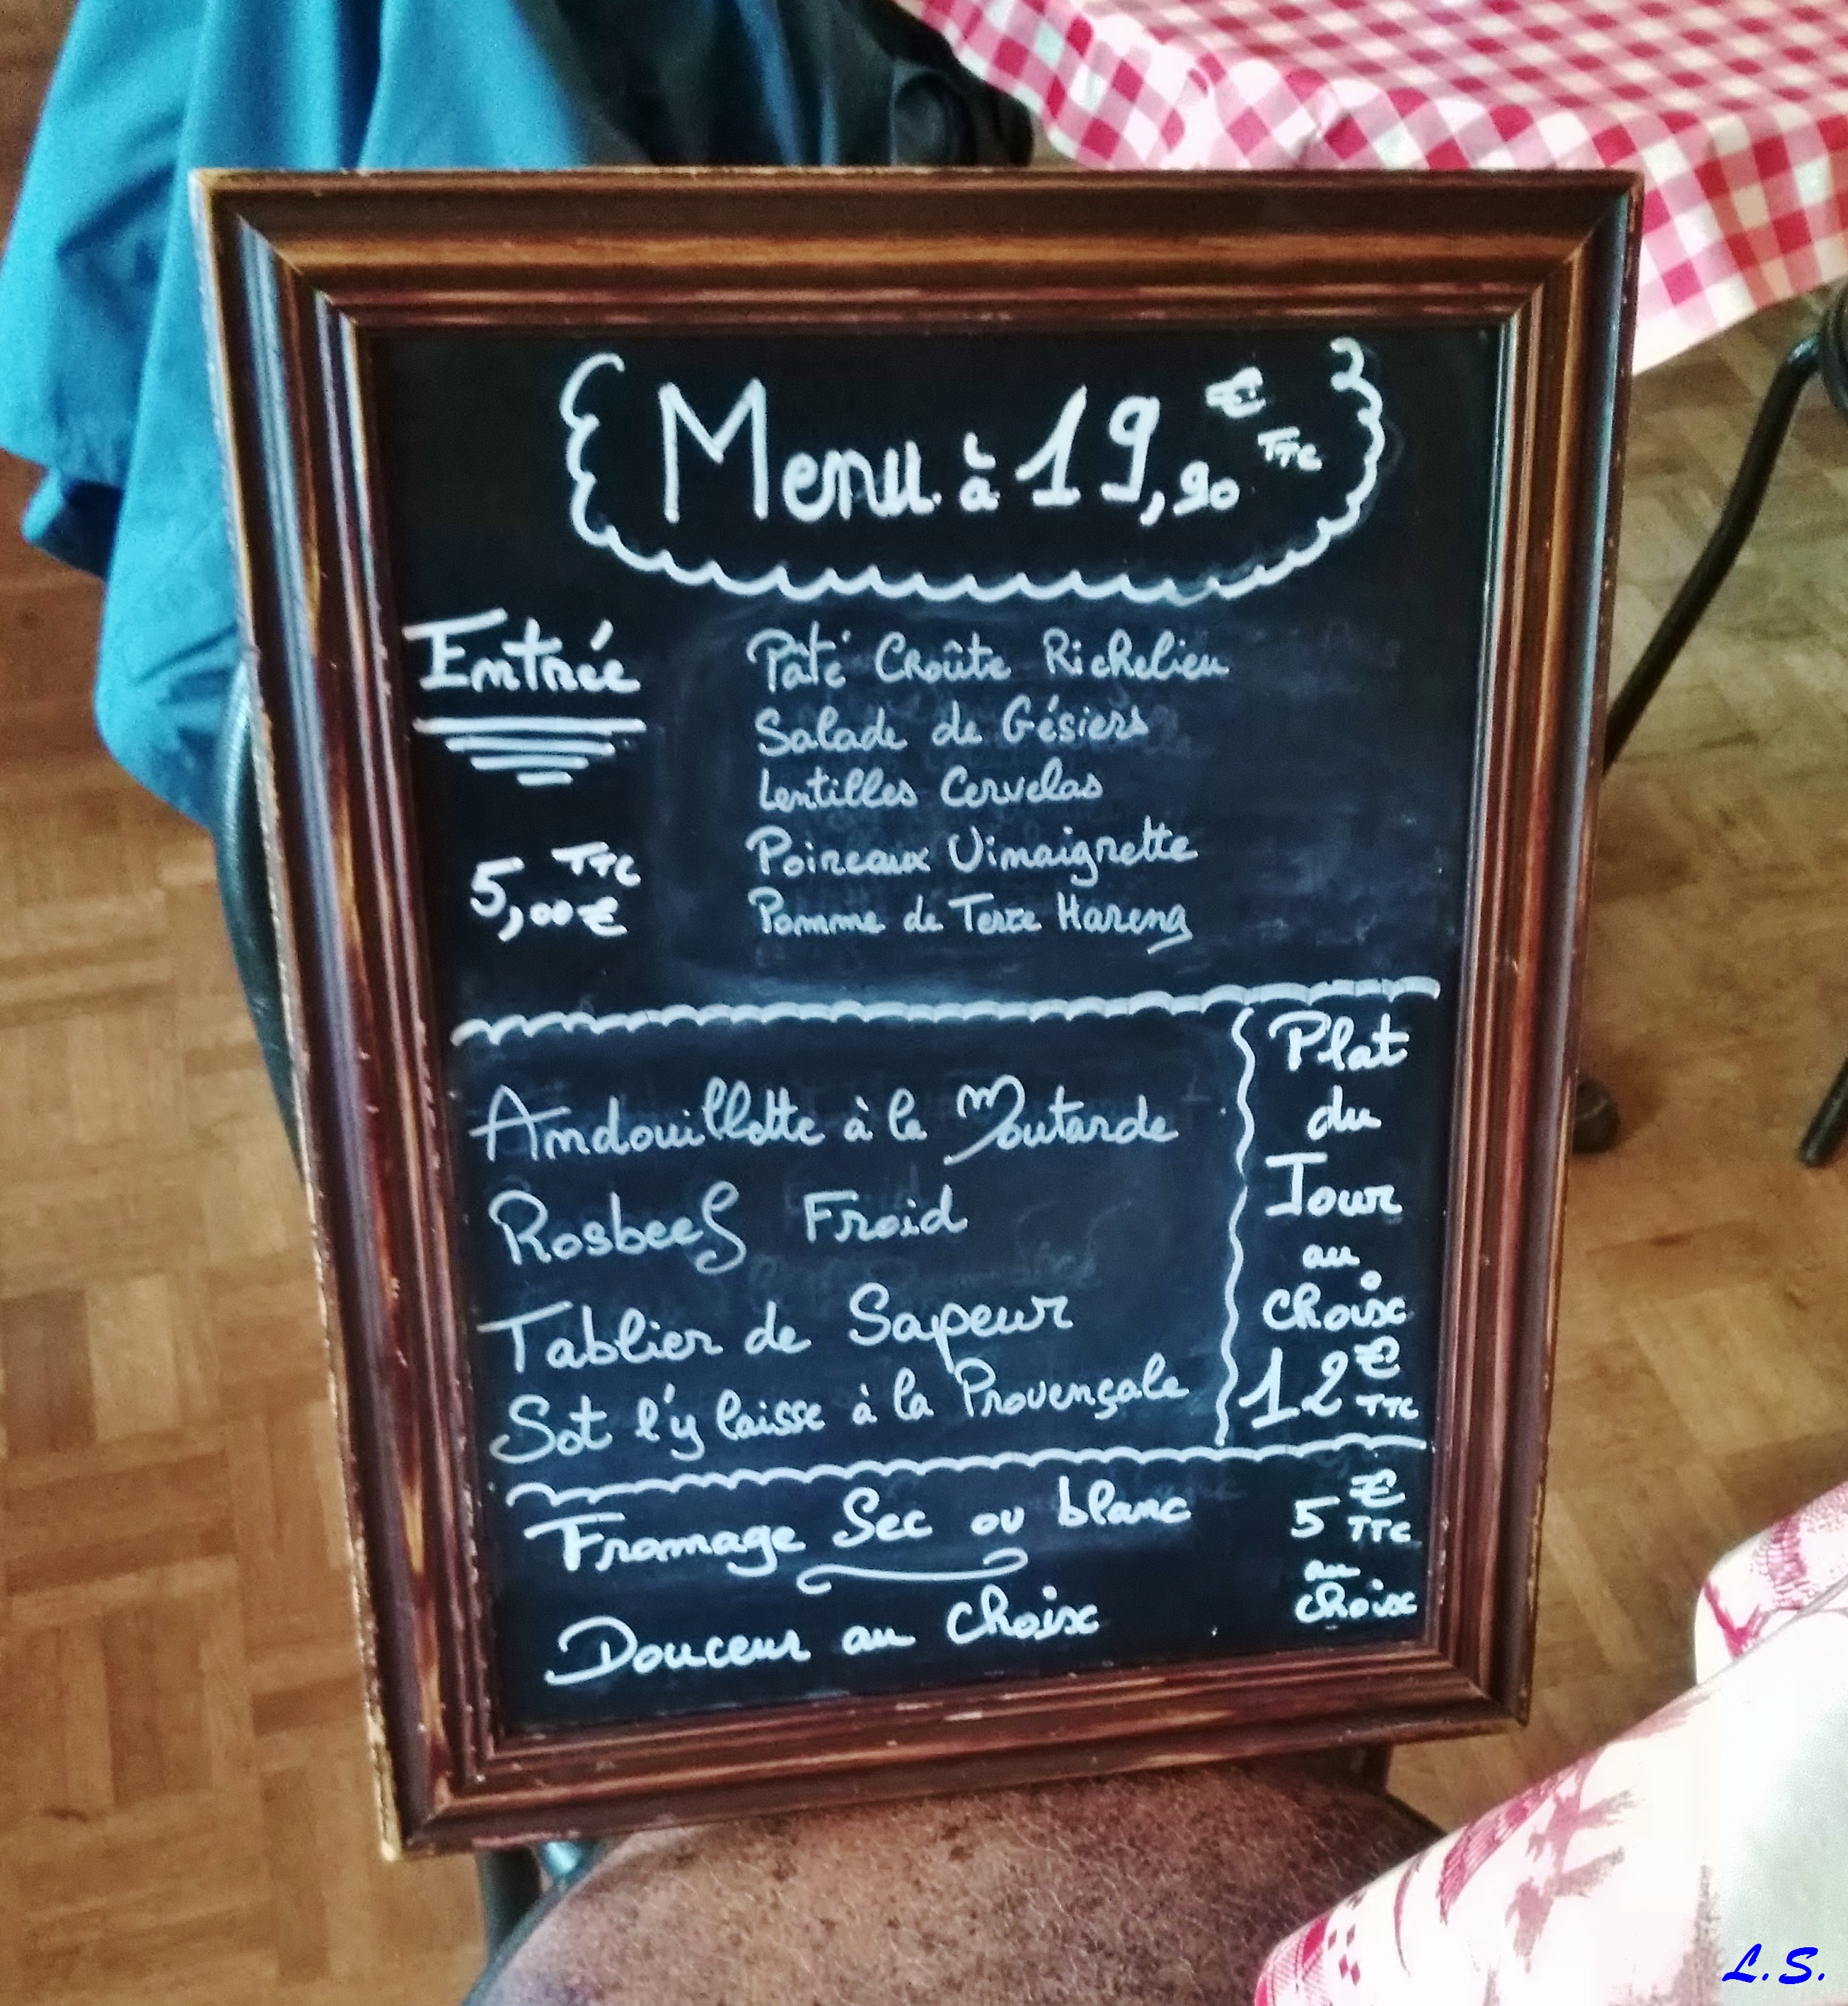 Menu à 19,90 € TTC
Entrée
5,00 € TTC
Pâté Croûte Richelieu
Salade de Gésiers
Lentilles Cervelas
Poireaux Vinaigrette
Pomme de Terre Hareng
Andouillette à la Moutarde
Rosbeef Froid
Tablier de Sapeur
Sot l'y laisse à la Provençale
Plat
du
Jour
au
choix
12 € TTC
Fromage Sec ou blanc
Douceur au choix
5 € TTC
au
choix
L.S.